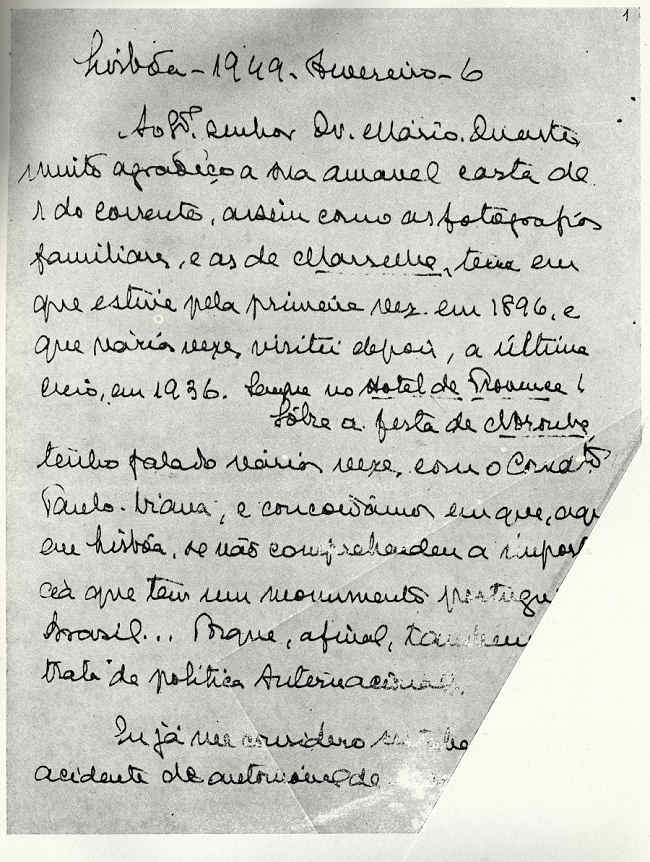 1
Lisbôa - 1949. Fevereiro - 6
Ao Exº. Senhor Dr. Mário. Duarte,
muito agradeço a sua amavel carta de
1 do corrente, assim como as fotografias
familiares, e as de Marselha, terra em
que estive pela primeira vez. em 1896, e
que várias vezes visitei depois, a última
creio, em 1936. Sempre no Hotel de Provence!
Sôbre a festa de
tenho falado várias vezes, com o Comdte
Paulo. Viana, e concordâmos em que, aqui
em Lisbôa, se não comprehendeu a import
cia que tem um monumento portugu
Brasil... Porque, afinal, tambem
trata de politica Internacional.
Eu já me considero
acidente de automovel de